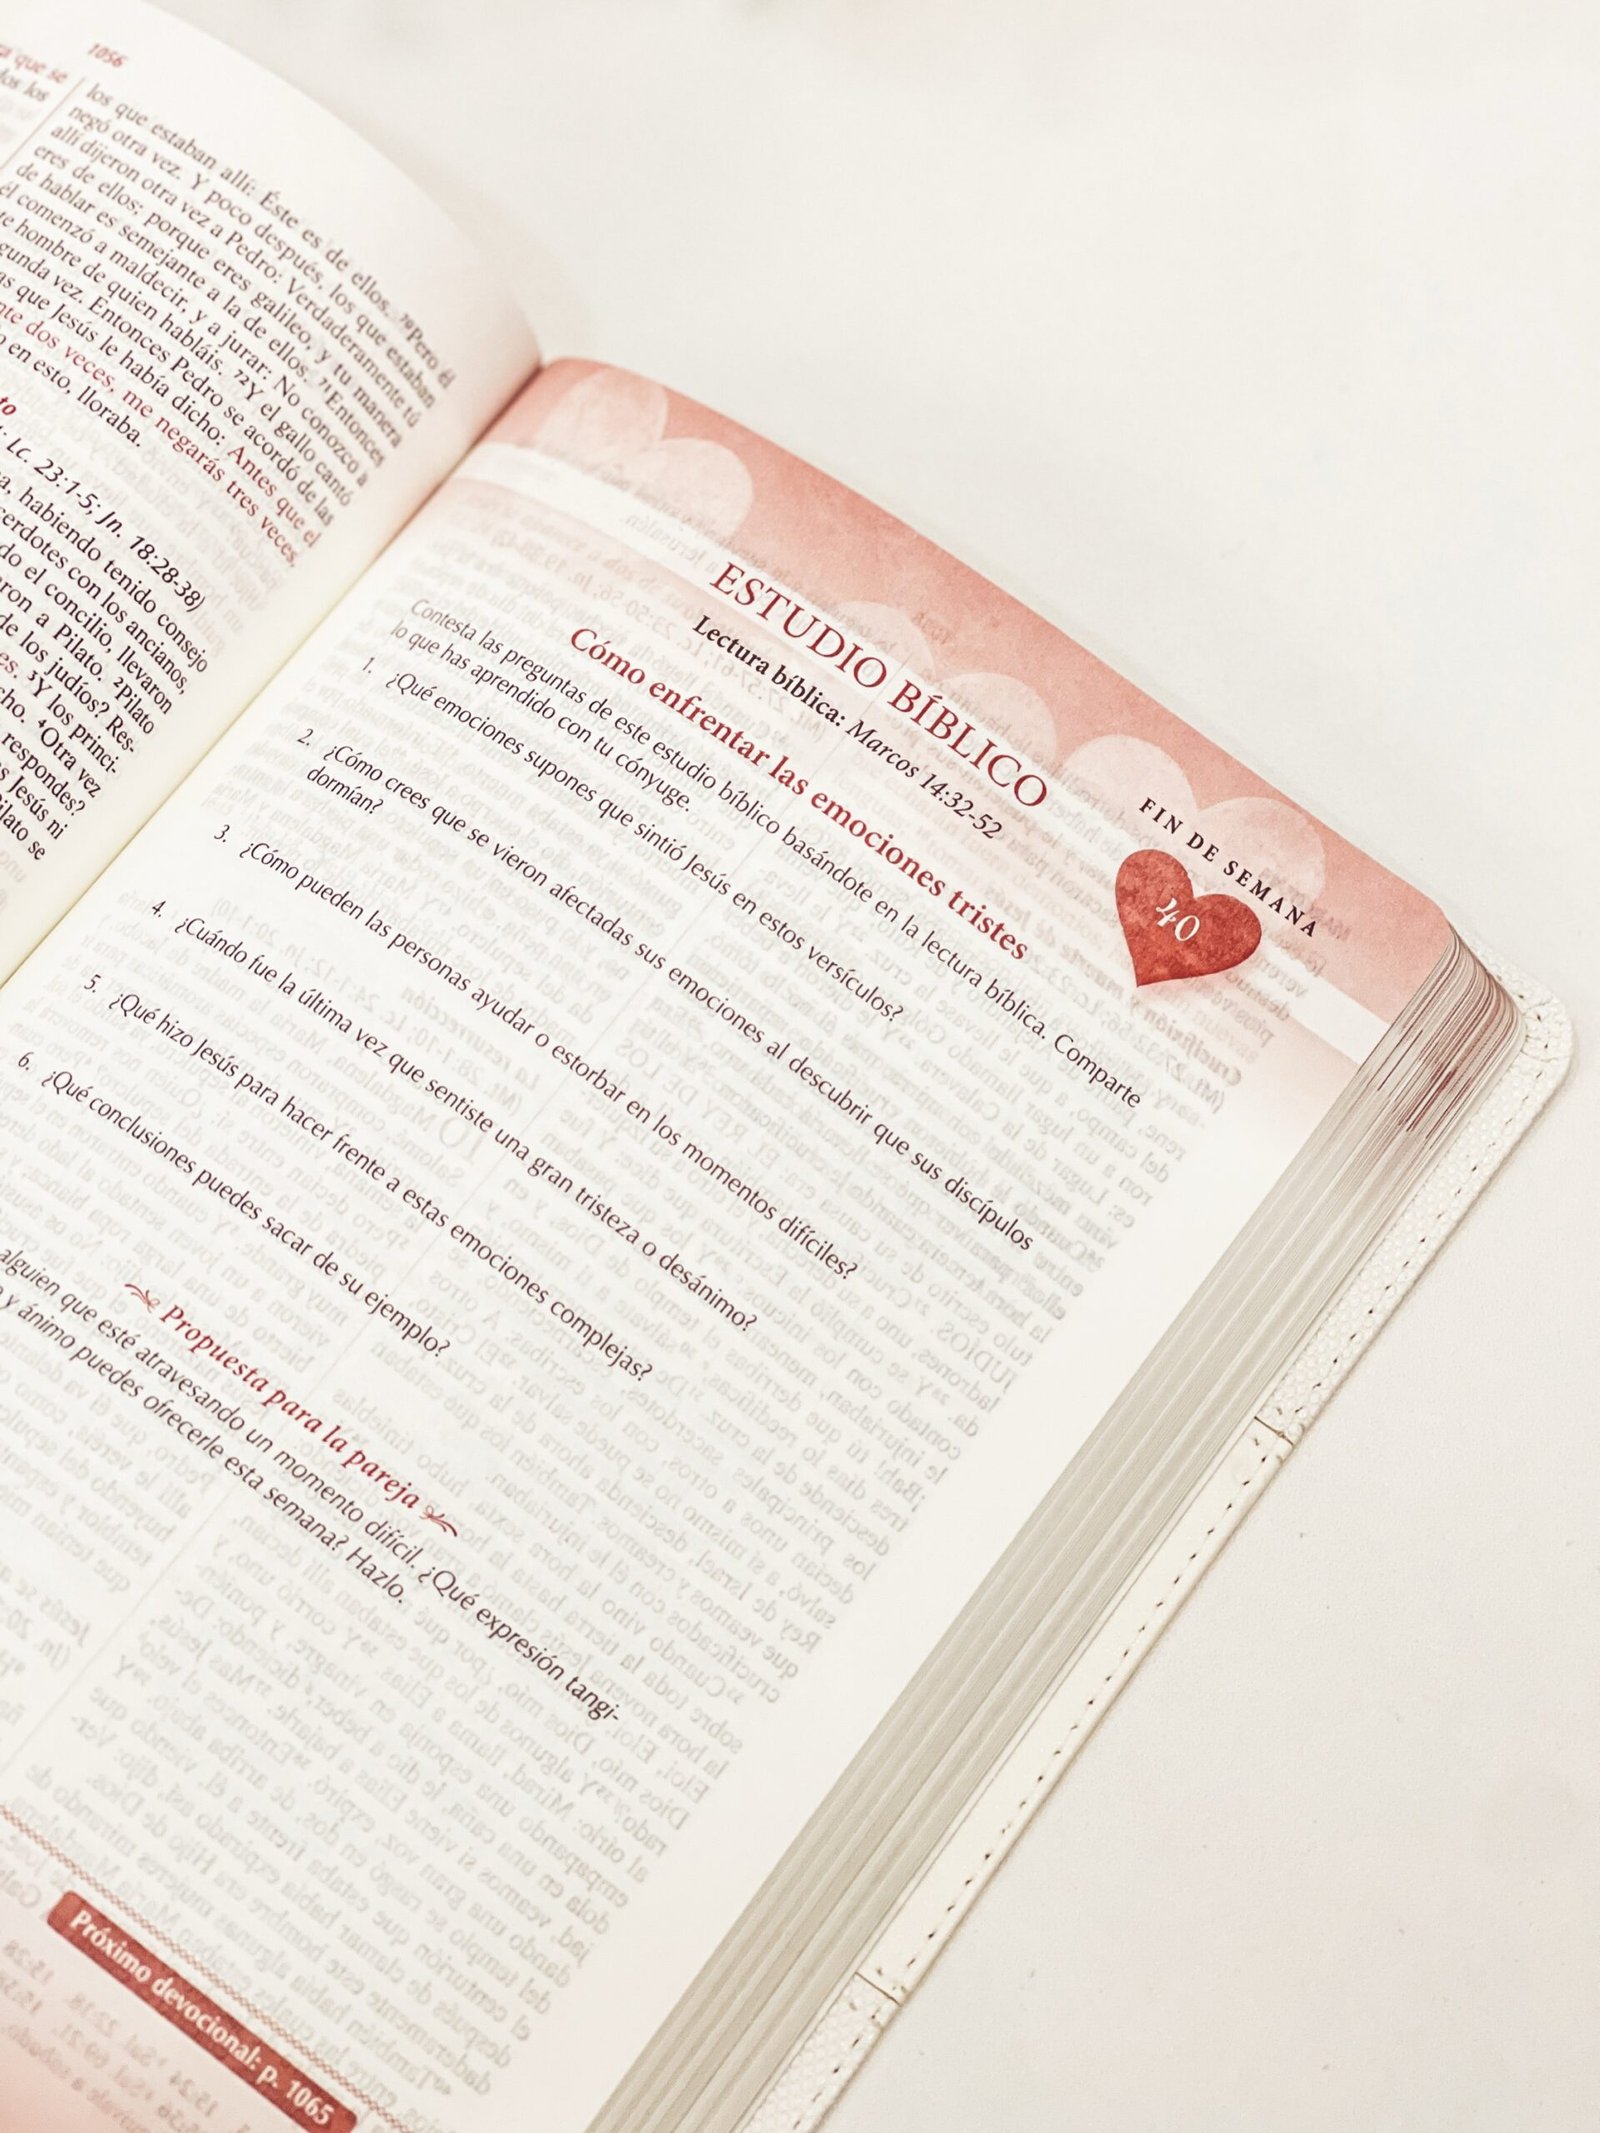 1056
que se
los que estaban allí: Éste es de ellos. ⁷⁰Pero él
negó otra vez. Y poco después, los que estaban
allí dijeron otra vez a Pedro: Verdaderamente tú
eres de ellos; porque eres galileo, y tu manera
de hablar es semejante a la de ellos. ⁷¹Entonces
él comenzó a maldecir, y a jurar: No conozco a
hombre de quien habláis. ⁷²Y el gallo cantó
segunda vez. Entonces Pedro se acordó de las
que Jesús le había dicho: Antes que el
dos veces, me negarás tres veces.
en esto, lloraba.
Lc. 23:1-5; Jn. 18:28-38)
habiendo tenido consejo
con los ancianos,
el concilio, llevaron
a Pilato. ²Pilato
de los judíos? Res-
³Y los princi-
⁴Otra vez
respondes?
Jesús ni
Pilato se
ESTUDIO BÍBLICO
Lectura bíblica: Marcos 14:32-52
FIN DE SEMANA
40
Cómo enfrentar las emociones tristes
Contesta las preguntas de este estudio bíblico basándote en la lectura bíblica. Comparte
lo que has aprendido con tu cónyuge.
1. ¿Qué emociones supones que sintió Jesús en estos versículos?
2. ¿Cómo crees que se vieron afectadas sus emociones al descubrir que sus discípulos
dormían?
3. ¿Cómo pueden las personas ayudar o estorbar en los momentos difíciles?
4. ¿Cuándo fue la última vez que sentiste una gran tristeza o desánimo?
5. ¿Qué hizo Jesús para hacer frente a estas emociones complejas?
6. ¿Qué conclusiones puedes sacar de su ejemplo?
Propuesta para la pareja
alguien que esté atravesando un momento difícil. ¿Qué expresión tangi-
y ánimo puedes ofrecerle esta semana? Hazlo.
Próximo devocional: p. 1065